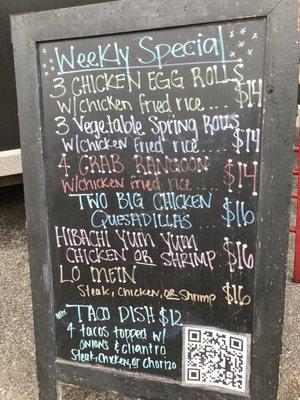 Weekly Special
3 CHICKEN EGG ROLLS
w/ chicken fried rice .... $14
3 Vegetable Spring ROLLS
w/ chicken fried rice.... $14
4 CRAB RANGOON
w/ chicken fried rice .... $14
TWO BIG CHICKEN
QUESADILLAS ..... $16
HIBACHI YUM YUM
CHICKEN OR SHRIMP ... $16
LO MEIN
Steak, Chicken, or Shrimp $16
TACO DISH $12
4 tacos topped w/
onions & cilantro
Steak, Chicken, or Chorizo